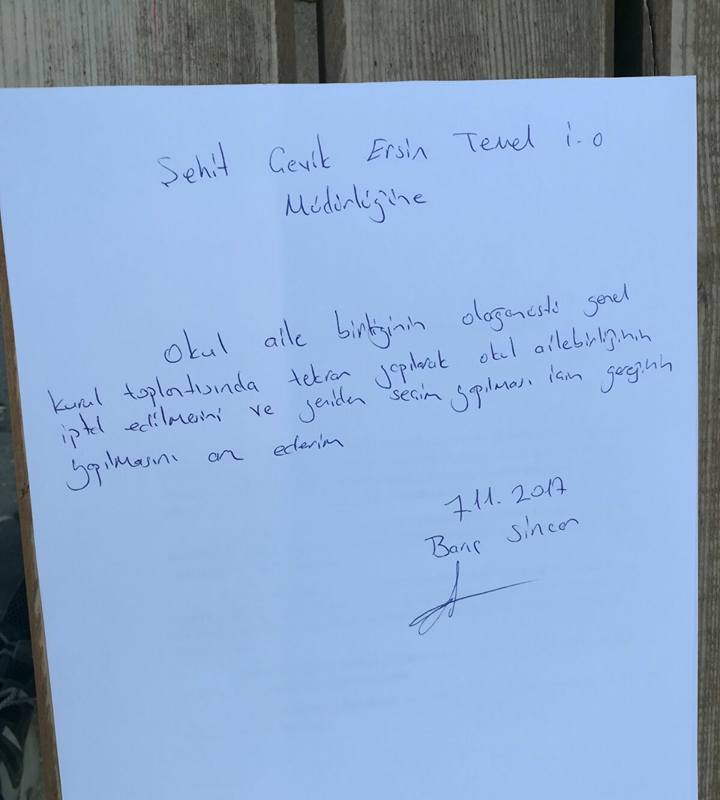 Şehit Gevik Ersin Temel i.o
Müdürlüğüne
Okul aile birliğinin olağanüstü genel
kurul toplantısında tekrar yapılarak okul ailebirliğinin
iptal edilmesini ve yeniden seçim yapılması için gereğinin
yapılmasını arz ederim
7.11.2017
Barış Sincar